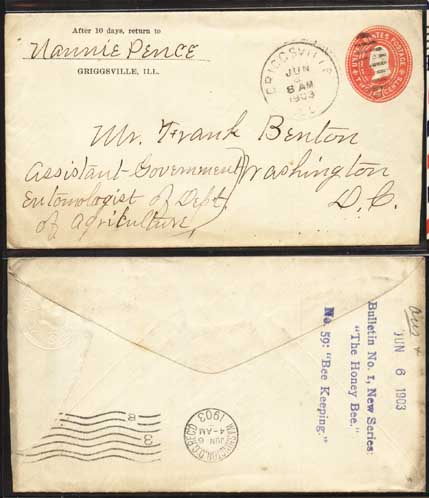 After 10 days, return to
Nannie Pence
GRIGGSVILLE, ILL.
GRIGGSVILLE
JUN
8 AM
1903
ILL.
UNITED STATES POSTAGE
TWO CENTS
Mr. Frank Benton
Assistant Government Washington
Entomologist of Dept. D.C.
of Agriculture
ans
JUN 6 1903
Bulletin No. 1, New Series:
"The Honey Bee."
No. 59: "Bee Keeping."
WASHINGTON, D.C. REC'D
JUN 6
4-AM
1903